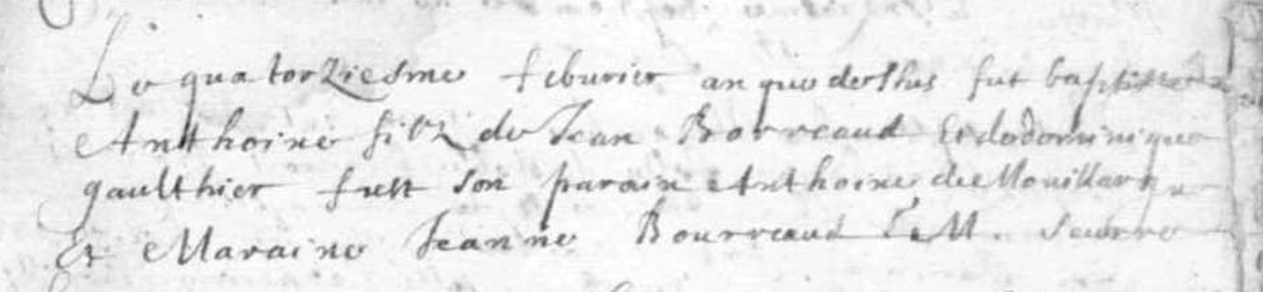 Le quatorziesme febvrier an que dessus fut baptisé
Anthoine filz de Jean Borreaud Et de dominique
gaulthier fust son parain Anthoine de
Et Maraine Jeanne Bourreaud